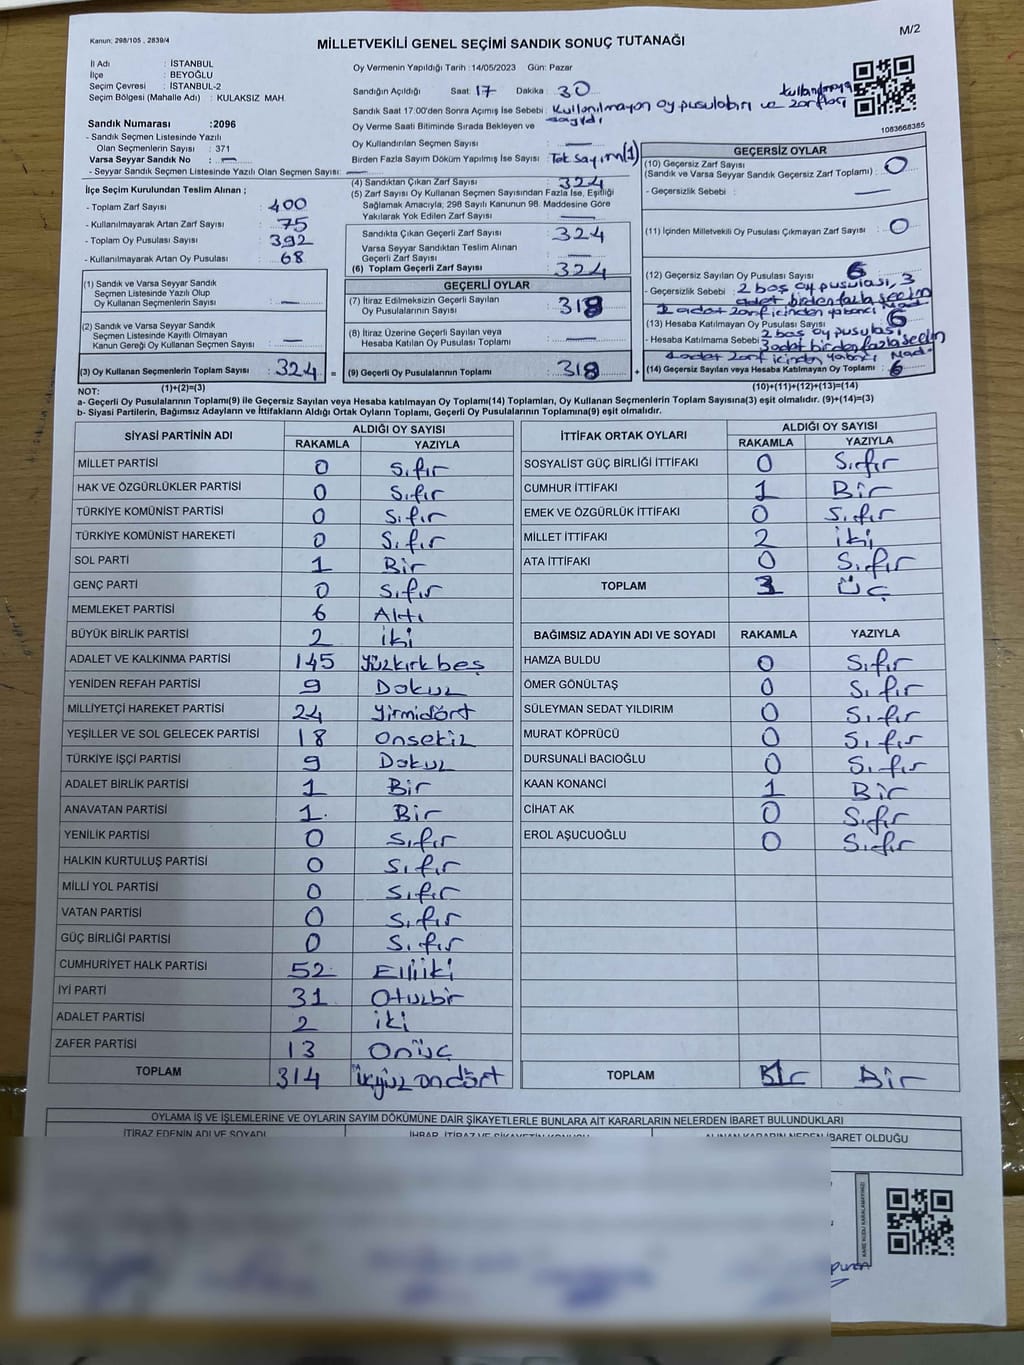 Kanun: 298/105 , 2839/4
M/2
MİLLETVEKİLİ GENEL SEÇİMİ SANDIK SONUÇ TUTANAĞI
İl Adı : İSTANBUL
İlçe : BEYOĞLU
Seçim Çevresi : İSTANBUL-2
Seçim Bölgesi (Mahalle Adı) : KULAKSIZ MAH.
Sandık Numarası :2096
- Sandık Seçmen Listesinde Yazılı
Olan Seçmenlerin Sayısı : 371
Varsa Seyyar Sandık No : —
- Seyyar Sandık Seçmen Listesinde Yazılı Olan Seçmen Sayısı: —
Oy Vermenin Yapıldığı Tarih :14/05/2023 Gün: Pazar
Sandığın Açıldığı Saat: 17 Dakika : 30
Sandık Saat 17:00'den Sonra Açımış İse Sebebi : Kullanılmayan oy pusulaları ve zarfları
sayıldı
Oy Verme Saati Bitiminde Sırada Bekleyen ve
Oy Kullandırılan Seçmen Sayısı : —
Birden Fazla Sayım Döküm Yapılmış İse Sayısı : Tek sayım(1)
1083668385
İlçe Seçim Kurulundan Teslim Alınan ;
- Toplam Zarf Sayısı : 400
- Kullanılmayarak Artan Zarf Sayısı : 75
- Toplam Oy Pusulası Sayısı : 392
- Kullanılmayarak Artan Oy Pusulası : 68
(1) Sandık ve Varsa Seyyar Sandık
Seçmen Listesinde Yazılı Olup
Oy Kullanan Seçmenlerin Sayısı : —
(2) Sandık ve Varsa Seyyar Sandık
Seçmen Listesinde Kayıtlı Olmayan
Kanun Gereği Oy Kullanan Seçmen Sayısı : —
(3) Oy Kullanan Seçmenlerin Toplam Sayısı : 324 =
(1)+(2)=(3)
(4) Sandıktan Çıkan Zarf Sayısı : 324
(5) Zarf Sayısı Oy Kullanan Seçmen Sayısından Fazla İse, Eşitliği
Sağlamak Amacıyla, 298 Sayılı Kanunun 98. Maddesine Göre
Yakılarak Yok Edilen Zarf Sayısı : —
Sandıkta Çıkan Geçerli Zarf Sayısı : 324
Varsa Seyyar Sandıktan Teslim Alınan
Geçerli Zarf Sayısı : —
(6) Toplam Geçerli Zarf Sayısı : 324
GEÇERLİ OYLAR
(7) İtiraz Edilmeksizin Geçerli Sayılan
Oy Pusulalarının Sayısı : 318
(8) İtiraz Üzerine Geçerli Sayılan veya
Hesaba Katılan Oy Pusulası Toplamı : —
(9) Geçerli Oy Pusulalarının Toplamı : 318 +
GEÇERSİZ OYLAR
(10) Geçersiz Zarf Sayısı
(Sandık ve Varsa Seyyar Sandık Geçersiz Zarf Toplamı) : 0
- Geçersizlik Sebebi : —
(11) İçinden Milletvekili Oy Pusulası Çıkmayan Zarf Sayısı : 0
(12) Geçersiz Sayılan Oy Pusulası Sayısı : 6
- Geçersizlik Sebebi : 2 boş oy pusulası, 3
adet birden fazla seçim
1 adet zarf içinden yabancı Mad.
(13) Hesaba Katılmayan Oy Pusulası Sayısı : 6
2 boş oy pusulası
- Hesaba Katılmama Sebebi : 3 adet birden fazla seçim
1 adet zarf içinden yabancı Mad.
(14) Geçersiz Sayılan veya Hesaba Katılmayan Oy Toplamı : 6
(10)+(11)+(12)+(13)=(14)
NOT:
a- Geçerli Oy Pusulalarının Toplamı(9) ile Geçersiz Sayılan veya Hesaba katılmayan Oy Toplamı(14) Toplamları, Oy Kullanan Seçmenlerin Toplam Sayısına(3) eşit olmalıdır. (9)+(14)=(3)
b- Siyasi Partilerin, Bağımsız Adayların ve İttifakların Aldığı Ortak Oyların Toplamı, Geçerli Oy Pusulalarının Toplamına(9) eşit olmalıdır.
SİYASİ PARTİNİN ADI ALDIĞI OY SAYISI
RAKAMLA YAZIYLA
MİLLET PARTİSİ 0 Sıfır
HAK VE ÖZGÜRLÜKLER PARTİSİ 0 Sıfır
TÜRKİYE KOMÜNİST PARTİSİ 0 Sıfır
TÜRKİYE KOMÜNİST HAREKETİ 0 Sıfır
SOL PARTİ 1 Bir
GENÇ PARTİ 0 Sıfır
MEMLEKET PARTİSİ 6 Altı
BÜYÜK BİRLİK PARTİSİ 2 iki
ADALET VE KALKINMA PARTİSİ 145 Yüzkırkbeş
YENİDEN REFAH PARTİSİ 9 Dokuz
MİLLİYETÇİ HAREKET PARTİSİ 24 Yirmidört
YEŞİLLER VE SOL GELECEK PARTİSİ 18 Onsekiz
TÜRKİYE İŞÇİ PARTİSİ 9 Dokuz
ADALET BİRLİK PARTİSİ 1 Bir
ANAVATAN PARTİSİ 1. Bir
YENİLİK PARTİSİ 0 Sıfır
HALKIN KURTULUŞ PARTİSİ 0 Sıfır
MİLLİ YOL PARTİSİ 0 Sıfır
VATAN PARTİSİ 0 Sıfır
GÜÇ BİRLİĞİ PARTİSİ 0 Sıfır
CUMHURİYET HALK PARTİSİ 52 Elliiki
İYİ PARTİ 31 Otuzbir
ADALET PARTİSİ 2 iki
ZAFER PARTİSİ 13 Onüç
TOPLAM 314 üçyüzondört
İTTİFAK ORTAK OYLARI ALDIĞI OY SAYISI
RAKAMLA YAZIYLA
SOSYALİST GÜÇ BİRLİĞİ İTTİFAKI 0 Sıfır
CUMHUR İTTİFAKI 1 Bir
EMEK VE ÖZGÜRLÜK İTTİFAKI 0 Sıfır
MİLLET İTTİFAKI 2 iki
ATA İTTİFAKI 0 Sıfır
TOPLAM 3 Üç
BAĞIMSIZ ADAYIN ADI VE SOYADI RAKAMLA YAZIYLA
HAMZA BULDU 0 Sıfır
ÖMER GÖNÜLTAŞ 0 Sıfır
SÜLEYMAN SEDAT YILDIRIM 0 Sıfır
MURAT KÖPRÜCÜ 0 Sıfır
DURSUNALİ BACIOĞLU 0 Sıfır
KAAN KONANCİ 1 Bir
CİHAT AK 0 Sıfır
EROL AŞUCUOĞLU 0 Sıfır
TOPLAM Bir
OYLAMA İŞ VE İŞLEMLERİNE VE OYLARIN SAYIM DÖKÜMÜNE DAİR ŞİKAYETLERLE BUNLARA AİT KARARLARIN NELERDEN İBARET BULUNDUKLARI
İTİRAZ EDENİN ADI VE SOYADI İHBAR, İTİRAZ VE ŞİKAYETİN KONUSU ALINAN KARARIN NEDEN İBARET OLDUĞU
KARE KODU KARALAMAYINIZ!